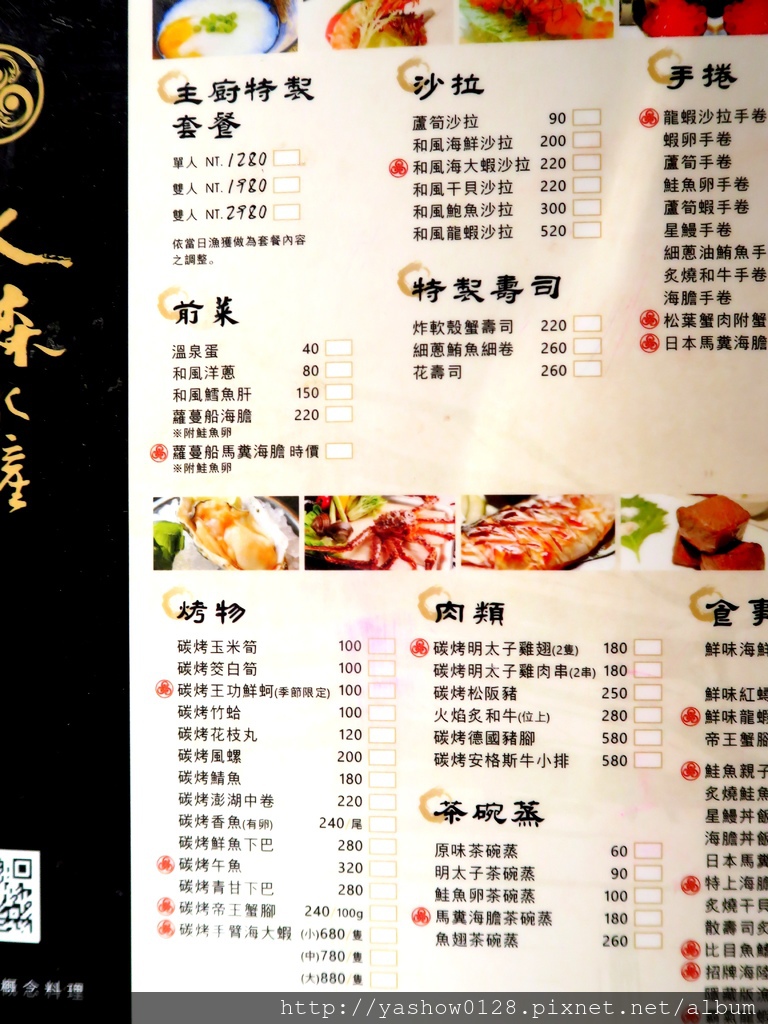 主廚特製
套餐
單人 NT.1280
雙人 NT.1980
雙人 NT.2980
依當日漁獲做為套餐內容
之調整。
前菜
溫泉蛋 40
和風洋蔥 80
和風鱈魚肝 150
蘿蔓船海膽 220
※附鮭魚卵
蘿蔓船馬糞海膽 時價
※附鮭魚卵
沙拉
蘆筍沙拉 90
和風海鮮沙拉 200
和風海大蝦沙拉 220
和風干貝沙拉 220
和風鮑魚沙拉 300
和風龍蝦沙拉 520
特製壽司
炸軟殼蟹壽司 220
細蔥鮪魚細卷 260
花壽司 260
手捲
龍蝦沙拉手卷
蝦卵手卷
蘆筍手卷
鮭魚卵手卷
蘆筍蝦手卷
星鰻手卷
細蔥油鮪魚手
炙燒和牛手卷
海膽手卷
松葉蟹肉附蟹
日本馬糞海膽
烤物
碳烤玉米筍 100
碳烤筊白筍 100
碳烤王功鮮蚵(季節限定) 100
碳烤竹蛤 100
碳烤花枝丸 120
碳烤風螺 200
碳烤鯖魚 180
碳烤澎湖中卷 220
碳烤香魚(有卵) 240 尾
碳烤鮮魚下巴 280
碳烤午魚 320
碳烤青甘下巴 280
碳烤帝王蟹腳 240 100g
碳烤手臂海大蝦 (小)680 隻
(中)780 隻
(大)880 隻
肉類
碳烤明太子雞翅(2隻) 180
碳烤明太子雞肉串(2串) 180
碳烤松阪豬 250
火焰炙和牛(位上) 280
碳烤德國豬腳 580
碳烤安格斯牛小排 580
茶碗蒸
原味茶碗蒸 60
明太子茶碗蒸 90
鮭魚卵茶碗蒸 100
馬糞海膽茶碗蒸 180
魚翅茶碗蒸 260
食事
鮮味海鮮
鮮味紅蟳
鮮味龍蝦
帝王蟹腳
鮭魚親子
炙燒鮭魚
星鰻丼飯
海膽丼飯
日本馬糞
特上海膽
炙燒干貝
散壽司炙
比目魚鰭
招牌海陸
水產
概念料理
http://yashow0128.pixnet.net/album